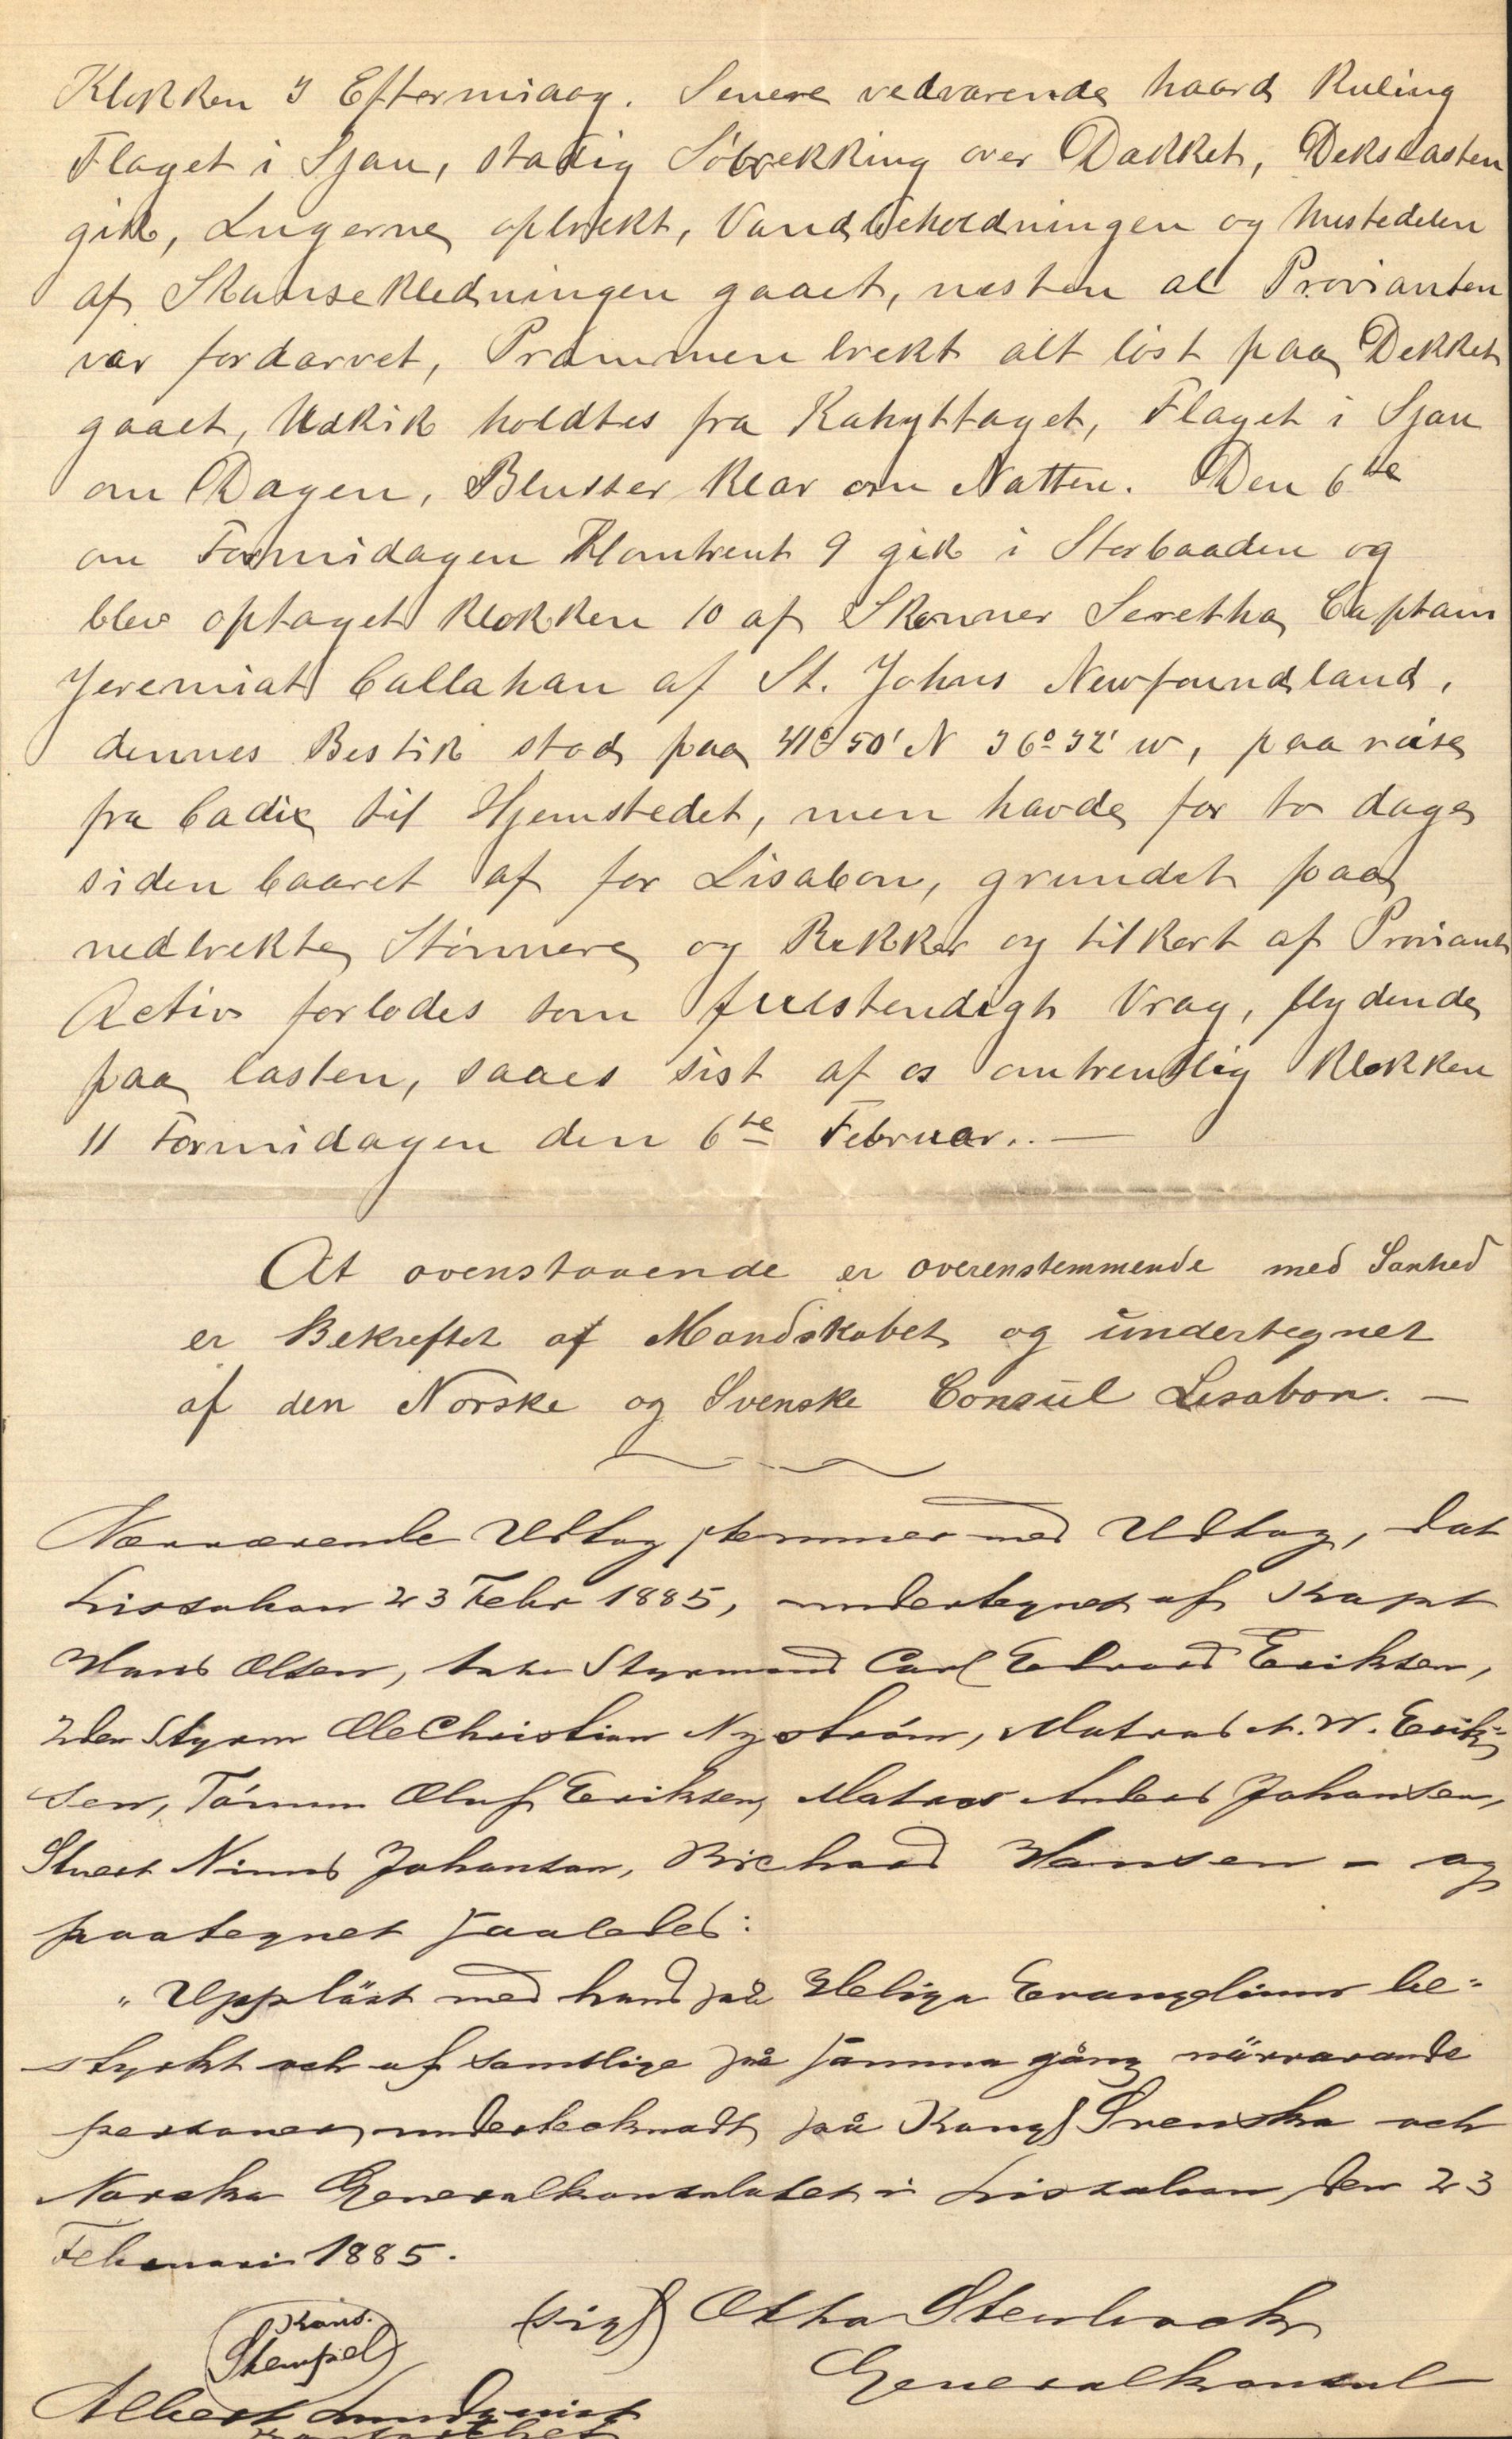 Klokken 3 Eftermidag. Senere vedvarende haard Kuling
Flaget i Sjau, stadig Söbrekking over Dækket, Dekslasten
gik, Lugerne opbrekt, Vandbeholdningen og Mestedelen
af Skansekledningen gaaet, nesten al Provianten
var fordærvet, Prammen brekt alt löst paa Dekket
gaaet, Udkik holdtes fra Kahyttaget, Flaget i Sjau
om Dagen, Blusser klar om Natten. Den 6te
om Formidagen Klomtrent 9 gik i Storbaaden og
blev optaget klokken 10 af Skonner Seretha, Captain
Jeremiat Callahan af St. Johns Newfoundland,
dennes Bestik stod paa 41° 50' N 36° 32' W, paa reise
fra Cadix til Hjemstedet, men havde for to dage
siden baaret af for Lisabon, grundet paa
nedbrekte Stönnere og Rekker og tilkort af Proviant
Activ forlodes som fulstendigt Vrag, flydende
paa lasten, saaes sist af os omtrentlig Klokken
11 Formidagen den 6te Februar. —
At ovenstaaende er overenstemmende med Sanhed
er Bekreftet af Mandskabet og undertegnet
af den Norske og Svenske Consul Lisabon. —
Nærværende Udtog stemmer med Udtog, dat
Lissabon 23 Febr 1885, undertegnet af Kapt
Hans Olsen, Styrmand Carl Edvard Eriksen,
2den Styrm Ole Christian Nyström, Matros A. W. Erik-
sen, Tömm Oluf Eriksen, Matros Anders Johansen,
Stuert Johansen, Richard Hansen – og
paategnet saaledes:
"Uppläst med hand på Heliga Evangelium be-
styrkt och af samtlige på samma gång närvarande
personer undertecknadt på Kongl Svenska och
Norska Generalkonsulatet i Lissabon den 23
Februari 1885.
(sign) Otho Stenbock
Generalkonsul
Kons.
Stempel
Albert Lundqvist